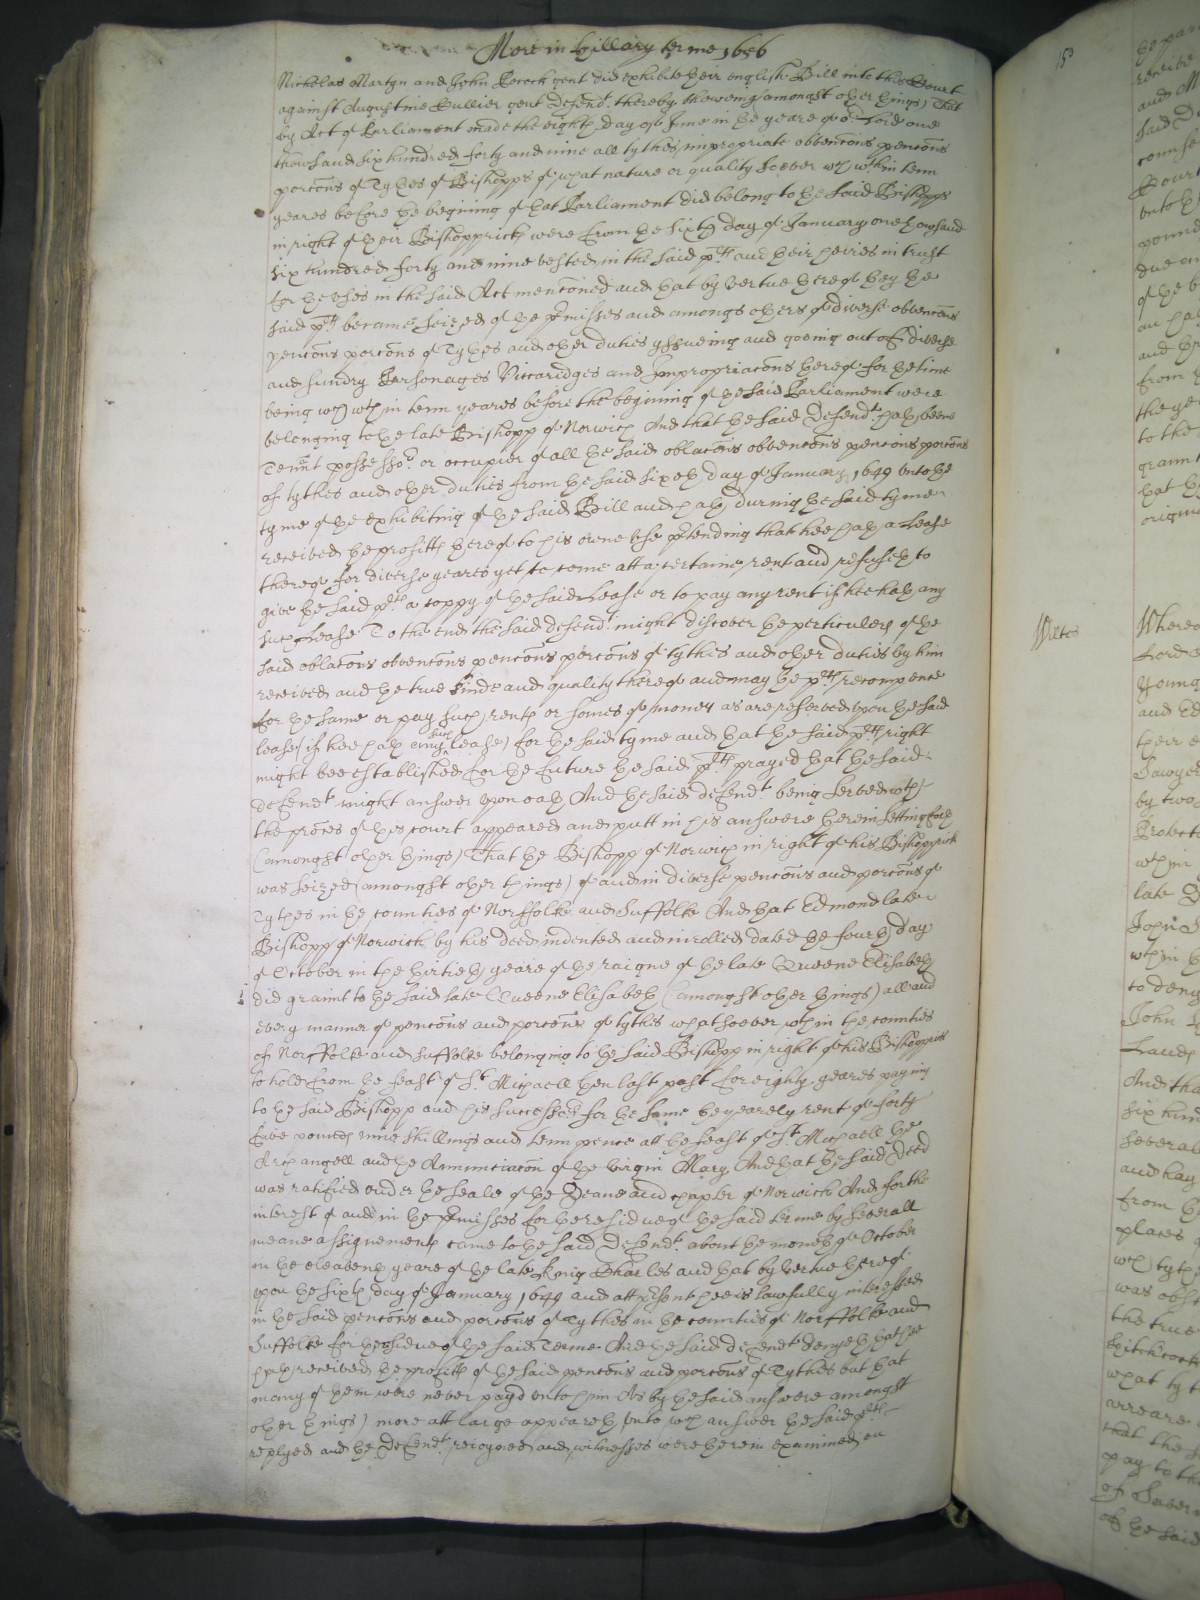 More in Hillary terme 1656
Nicholas Martyn and John Pocock gent did exhibite their english Bill into this Court
against Augustine Bullier gent Defendt. thereby showeing (amongst other things) That
by Act of Parliament made the eighth day of June in the yeare of or Lord one
thowsand six hundred forty and nine all tythes impropriate obvencons pencons
porcons of Tythes of Bishopps of what nature or quality soever wch wthin tenn
yeares before the begining of that Parliament did belong to the said Bishopps
in right of their Bishoppricks were from the sixth day of January one thowsand
six hundred forty and nine vested in the said plts and their heires in trust
for the vses in the said Act mencōned and that by vertue thereof they the
said plts became seized of the p̄misses and amongs others of diverse obvencōns
pencōns porcōns of Tythes and other duties yssueing and goeing out of diverse
and sundry Parsonages Viccaridges and Impropriacōns thereof for the time
being wch wthin tenn yeares before the begining of the said Parliament were
belonging to the late Bishopp of Norwich And that the said Defendt. hath beene
Tennt possessor or occupier of all the said oblacōns obvencōns pencōns porcōns
of tythes and other duties from the said sixth day of January 1649 vnto the
tyme of the exhibiting of the said Bill and hath during the said tyme
received the profitts thereof to his owne vse p̄tending that hee hath a Lease
thereof for diverse yeares yet to come att a certaine rent and refuseth to
give the said plts a coppy of the said Lease or to pay any rent if hee hath any
such Lease To the end the said defendt. might discover the perticulers of the
said oblacōns obvencōns pencōns porcōns of tythes and other duties by him
received and the true kinde and quality thereof and may the plts recompence
for the same or pay such rents or somes of money as are reserved vpon the said
lease (if hee hath any such lease) for the said tyme and that the said plts right
might bee established for the future the said plts prayed that the said
defendt. might answer vpon oath And the said defendt. being served wth
the proces of this court appeared and putt in his answere therein setting forth
(amongst other things) That the Bishopp of Norwich in right of his Bishopprick
was seized (amongst other things) of and in diverse pencōns and porcōns of
Tythes in the counties of Norffolke and Suffolke And that Edmond late
Bishopp of Norwich by his deed indented and inrolled dated the fourth day
of October in the thirtieth yeare of the raigne of the late Queene Elisabeth
did graunt to the said late Queene Elisabeth (amongst other things) all and
every manner of pencōns and porcōns of tythes whatsoever wthin the counties
of Norffolke and Suffolke belonging to the said Bishopp in right of his Bishopprick
to hold from the feast of St. Michaell then last past for eighty yeares paying
to the said Bishopp and his successors for the same the yearely rent of forty
five pounds nine shillings and tenn pence att the feast of St. Michaell the
Archangell and the Annunciacōn of the virgin Mary And that the said Deed
was ratified vnder the seale of the Deane and chapter of Norwich And for the
interest of and in the p̄misses for the residue of the said terme by severall
meane assignements came to the said Defendt. about the moneth of October
in the eleaventh yeare of the late King Charles and that by vertue thereof
vpon the sixth day of January 1649 and att p̄sent hee is lawfully interessed
in the said pencōns and porcōns of Tythes in the counties of Norffolke and
Suffolke for the residue of the said Terme And the said Defendt. denyeth that hee
hath received the profitts of the said pencōns and porcōns of Tythes but that
many of them were never payd vnto him As by the said answere amongst
other things) more att large appeareth vnto wch answer the said plts
replyed and the Defendt. reioyned and witnesses were therein examined on
153
Wiltes
Whereas